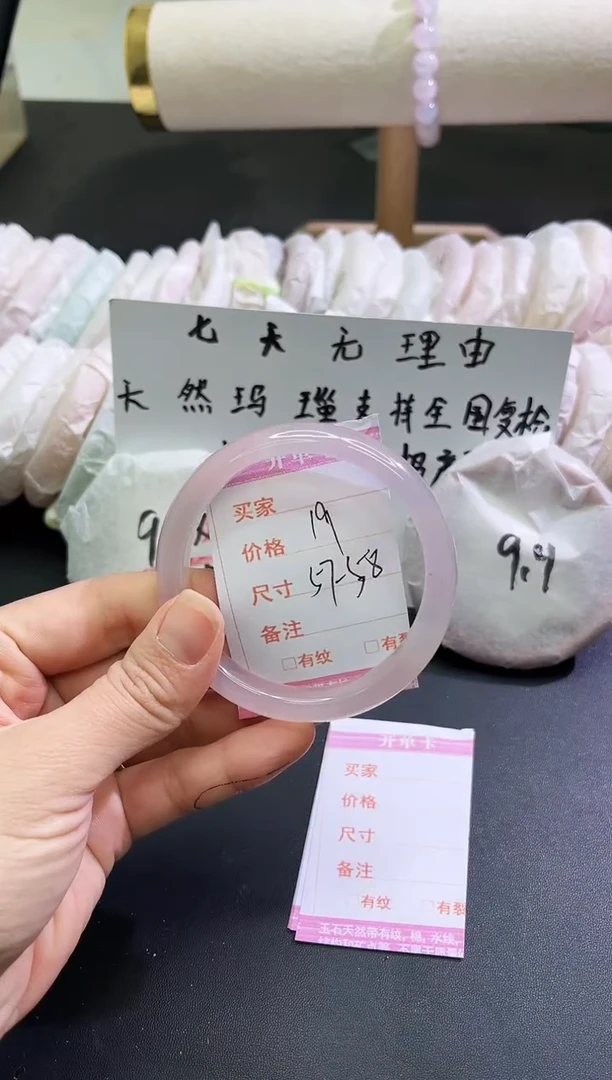 七天无理由
天然玛瑙支持全国复检
开单卡
买家
价格 19
尺寸 57-58
备注
□有纹 □有裂
9.9
开单卡
买家
价格
尺寸
备注
□有纹 □有裂
玉石天然带有纹，棉，水线，